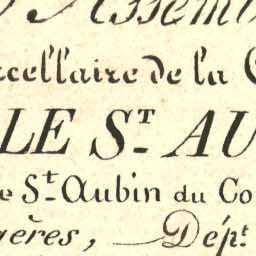 Assem
rcellaire de la C
LE ST. AU
e St. Aubin du Co
gères, — Dépt.